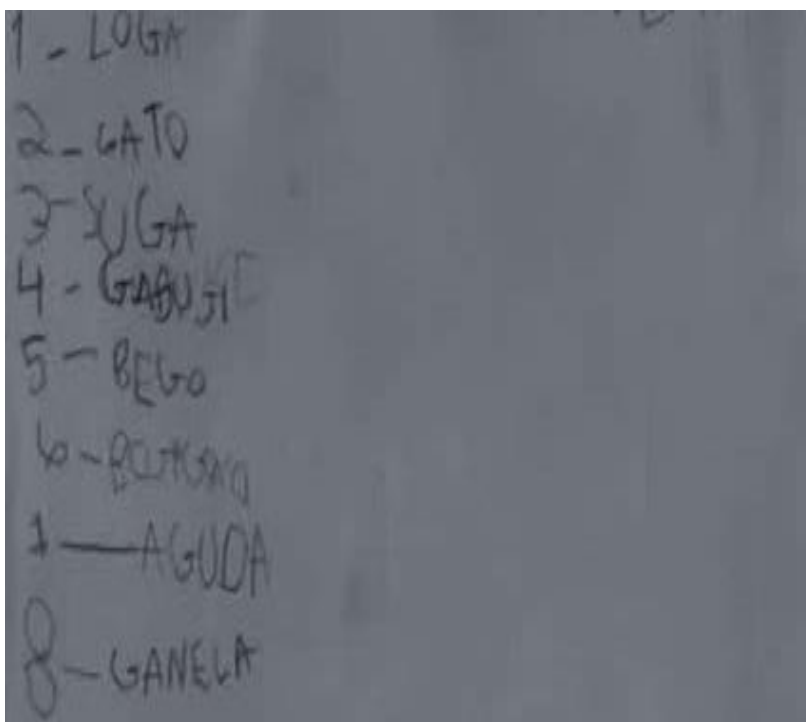 1 - LOGA
2 - GATO
3 - SUGA
4 - GABUJI
5 - BEGO
6 -
1 - AGUDA
8 - GANELA